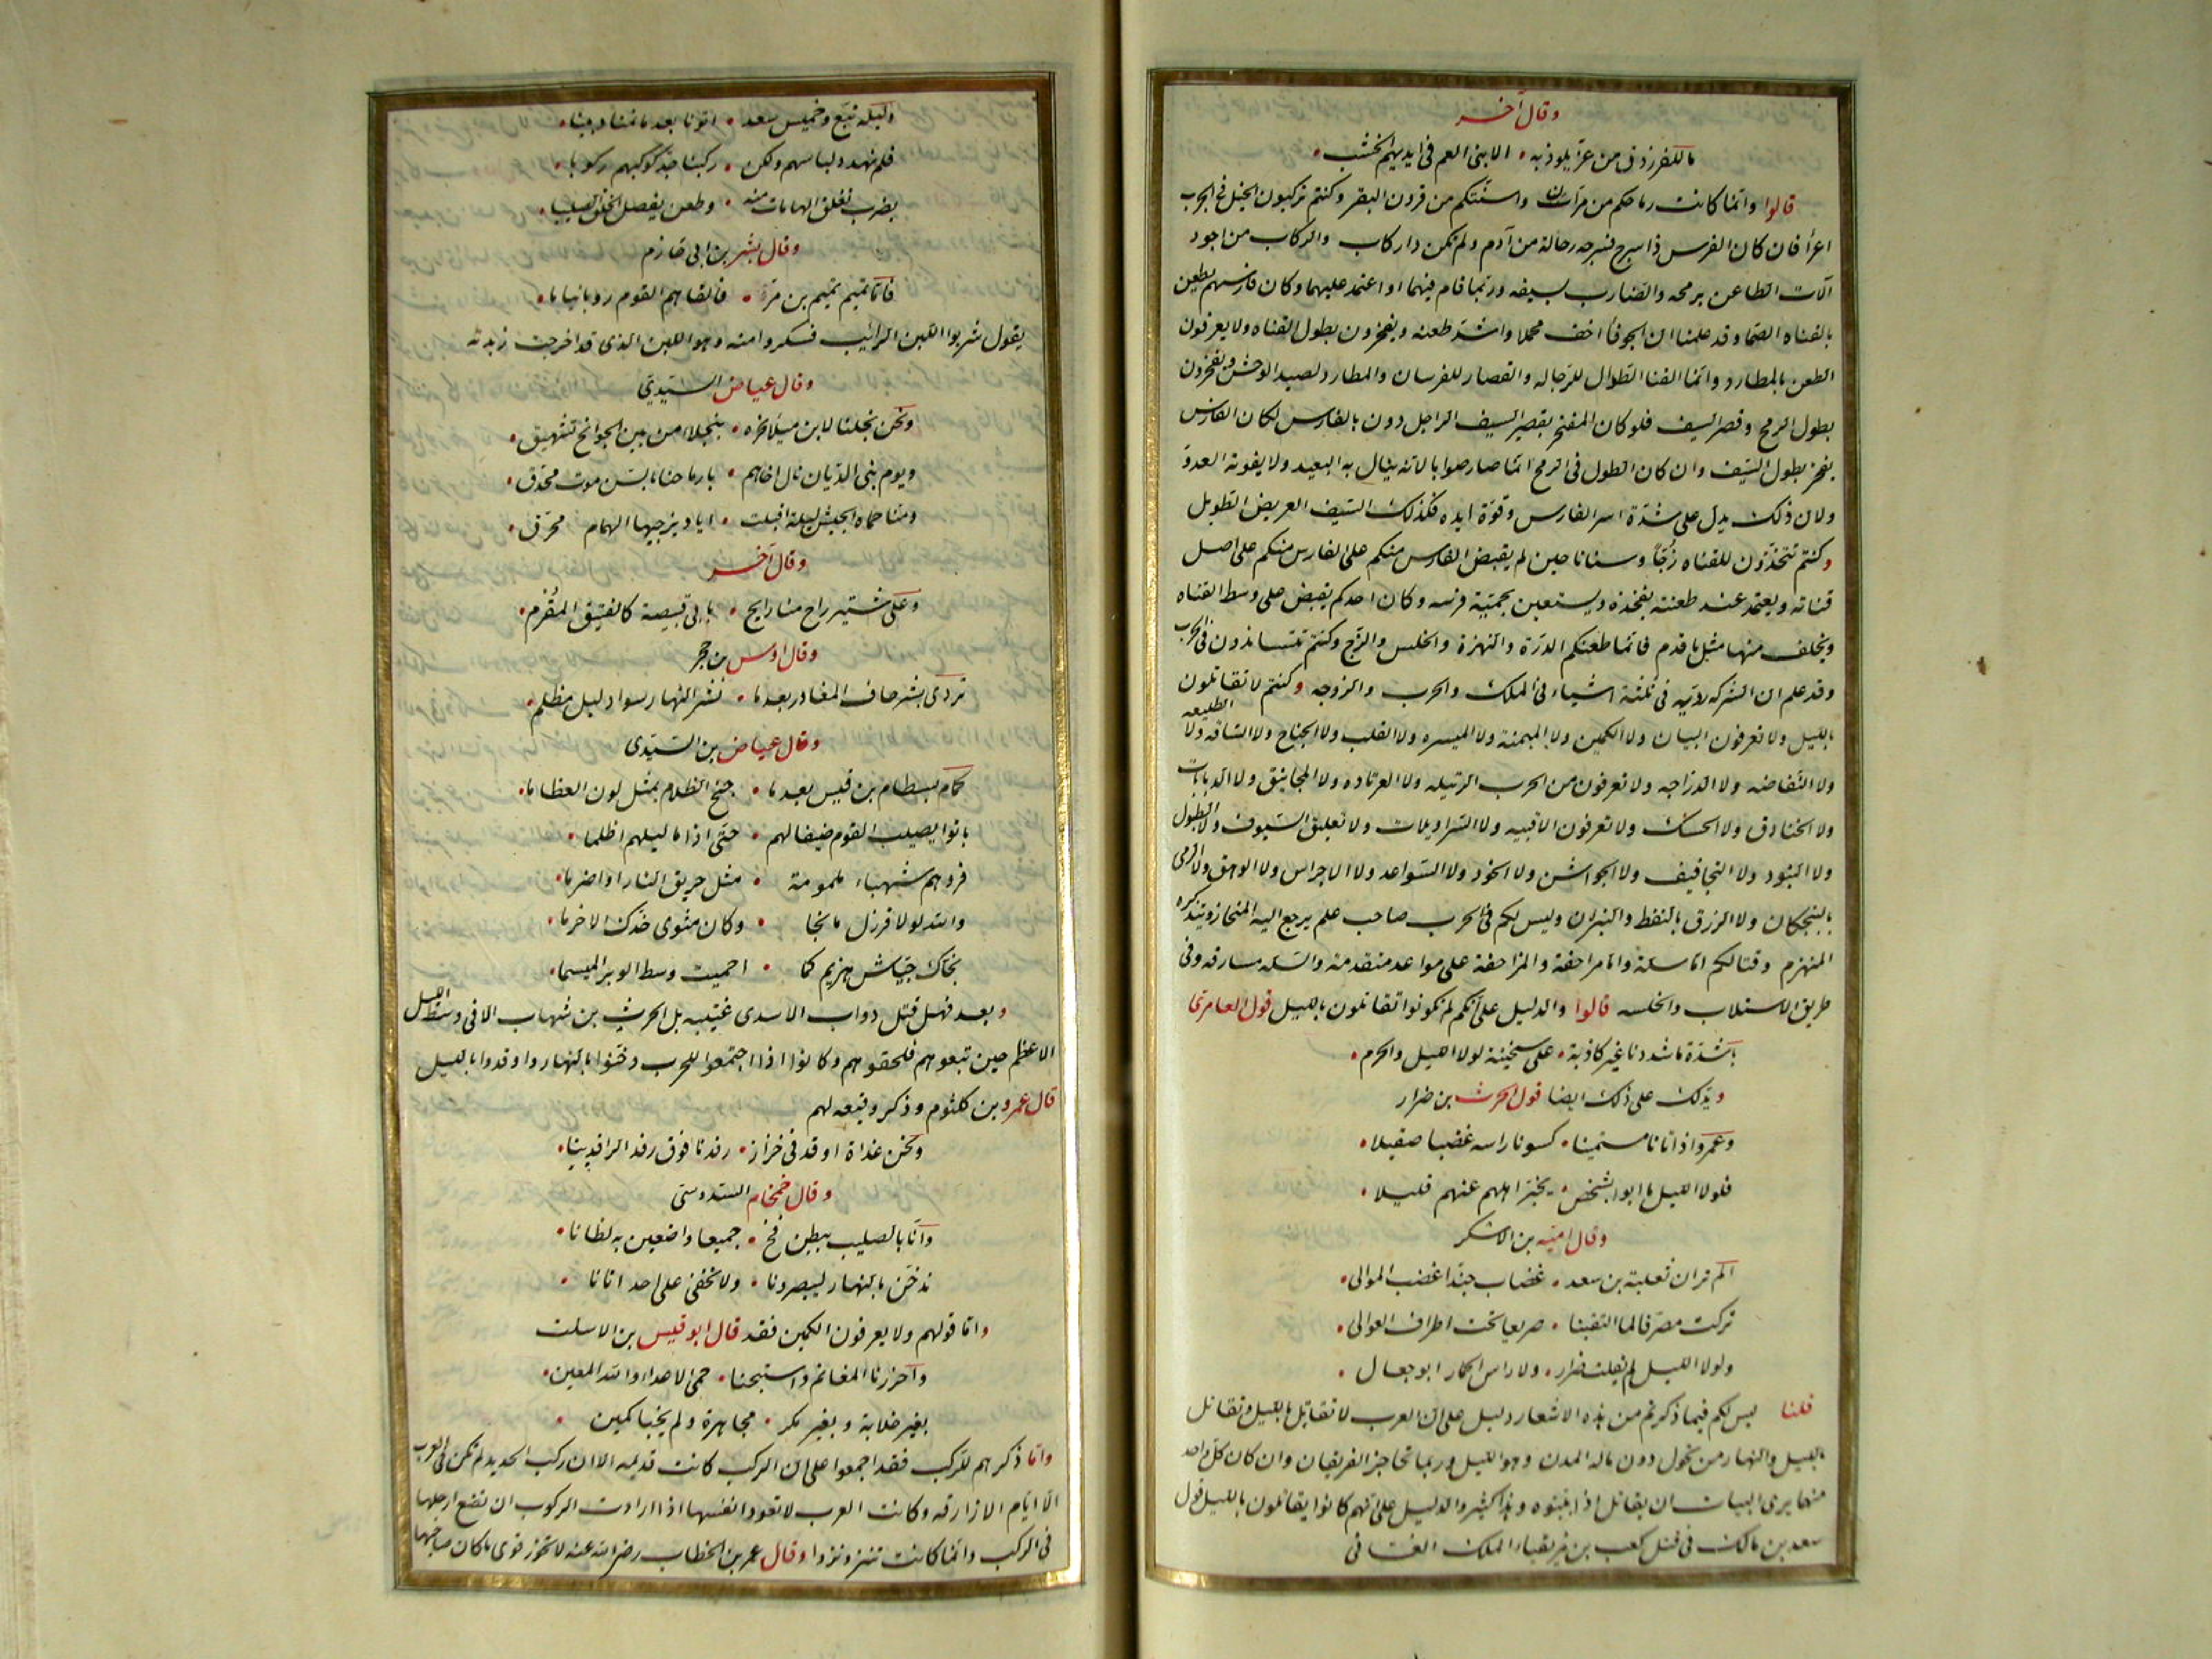 وقال آخر
ما للفرزدق من عز يلوذ به • الا بنى العم فى ايديهم الخشب •
قالوا وانما كانت رماحكم من مران واسنتكم من قرون البقر وكنتم تركبون الخيل فى الحرب
اعراء فان كان الفرس ذا سرج فسرجه رحالة من آدم ولم يكن ذا ركاب والركاب من اجود
آلات الطاعن برمحه والضارب بسيفه وربما قام فيهما او اعتمد عليهما وكان فارسهم يطعن
بالقناه الصما وقد علمنا ان الجوفاء اخف محملا واشد طعنه ويفخرون بطول القناه ولا يعرفون
الطعن بالمطارد وانما القنا الطوال للرجاله والقصار للفرسان والمطارد لصيد الوحش ويفخرون
بطول الرمح وقصر السيف فلو كان المفتخر بقصر السيف الراجل دون الفارس لكان الفارس
يفخر بطول السيف وان كان الطول فى الرمح انما صار صوابا لانه ينال به البعيد ولا يفوته العدو
ولان ذلك يدل على شدة اسر الفارس وقوة ايده فكذلك السيف العريض الطويل
وكنتم تتخذون للقناه زجا وسنانا حين لم يقبض الفارس منكم على الفارس منكم على اصل
قناته ويعتمد عند طعنته بفخذه ويستعين بحمية فرسه وكان احدكم يقبض على وسط القناه
ويخلف منها مثل ما قدم فانما طعنكم الدرة والنهزة والخلس والزج وكنتم تتساندون فى الحرب
وقد علم ان الشركه رديه فى ثلثة اشياء فى الملك والحرب والزوجه وكنتم لا تقاتلون
بالليل ولا تعرفون البيات ولا الكمين ولا الميمنة ولا الميسره ولا القلب ولا الجناح ولا الساقه ولا الطليعه
ولا النفاضه ولا الدراجه ولا تعرفون من الحرب الرتيله ولا العراده ولا المجانيق ولا الدبابات
ولا الخنادق ولا الحسك ولا تعرفون الاقبيه ولا السراويلات ولا تعليق السيوف ولا الطبول
ولا البنود ولا التجافيف ولا الجواشن ولا الخوذ ولا السواعد ولا الاجراس ولا الوهق ولا الرمى
بالبنجكان ولا الزرق بالنفط والنيران وليس لكم فى الحرب صاحب علم يرجع اليه المنحاز ويتذكره
المنهزم وقتالكم اما سلة واما مزاحفة والمزاحفة على مواعد متقدمة والسله مسارقه وفى
طريق الاستلاب والخلسه قالوا والدليل على انكم لم تكونوا تقاتلون بالليل قول العامرى
يا شدة ما شددنا غير كاذبة • على سخينة لولا الليل والحرم •
ويدلك على ذلك ايضا قول الحرث بن ضرار
وعمرو اذ اتانا مستميتا • كسونا راسه عضبا صقيلا •
فلولا الليل ما ابوا بشخص • يخبر اهلهم عنهم قليلا •
وقال اميه بن الاسكر
الم تر ان ثعلبة بن سعد • غضاب حبذا غضب الموالى •
تركت مصرفا لما التقينا • صريعا تحت اطراف العوالى •
ولولا الليل لم يفلت ضرار • ولا راس الحمار ابو جعال •
قلنا ليس لكم فيما ذكرتم من هذه الاشعار دليل على ان العرب لا تقاتل بالليل وتقاتل
بالليل والنهار من تحول دون ماله المدن وهو الليل وربما تحاجز الفريقان وان كان كل واحد
منهما يرى البيات ان يقاتل اذا بيتوه وهذا كثير والدليل على انهم كانوا يقاتلون بالليل قول
سعد بن مالك فى قتل كعب بن مزيقياء الملك الغسانى
وليله تبع وخميس سعد • اتونا بعد ما نمنا دبيبا •
فلم نهدد لباسهم ولكن • ركبنا حد كوكبهم ركوبا •
بضرب تفلق الهامات منه • وطعن يفصل الحلق الصليبا •
وقال بشر بن ابى خازم
فاما تميم تميم بن مرة • فالفاهم القوم روبا نياما •
يقول شربوا اللبن الرائيب فسكروا منه وهو اللبن الذى قد اخرجت زبدته
وقال عياض السيدى
ونحن نجلنا لابن ميلا نحره • بنجلاء من بين الجوانح تشهيق •
ويوم بنى الديان نال اخاهم • بارماحنا بالسى موت محدق •
ومنا حماه الجيش ليلة اقبلت • اياد يزجيها الهمام محرق •
وقال آخر
وعلى شتير راح منا رايح • بابى قبيصة كالفنيق المقرم •
وقال اوس بن حجر
تردى بشر حاف المغاور بعد ما • نشر النهار سواد ليل مظلم •
وقال عياض بن السيدى
لحمام بسطام بن قيس بعد ما • جنح الظلام بمثل لون العظلما •
باتوا يصيب القوم ضيفا لهم • حتى اذا ما ليلهم اظلما •
قروهم شهباء ملمومة • مثل حريق النار او اضرما •
والله لولا قرزل ما نجا • وكان مثوى خدك الاخرما •
نجاك جياش هزيم كما • احميت وسط الوبر الميسما •
وبعد فهل قتل دواب الاسدى عتيبه بن الحرث بن شهاب الا فى وسط الليل
الاعظم حين تبعوهم فلحقوهم وكانوا اذا اجتمعوا للحرب دخنوا بالنهار واوقدوا بالليل
قال عمرو بن كلثوم وذكر وقيعه لهم
ونحن غداة اوقد فى خزاز • رفدنا فوق رفد الرافدينا •
وقال خمخام السدوسى
وانا بالصليب ببطن فخ • جميعا واضعين به لظانا •
ندخن بالنهار ليبصرونا • ولا نخفى على احد اتانا •
واما قولهم ولا يعرفون الكمين فقد قال ابو قيس بن الاسلت
واحرزنا المغانم واستبحنا • حمى الاعداء والله المعين •
بغير خلابة وبغير مكر • مجاهرة ولم يخبا كمين •
واما ذكرهم للركب فقد اجمعوا على ان الركب كانت قديمه الا ان ركب الحديد لم تكن فى العرب
الا ايام الازارقه وكانت العرب لا تعود انفسها اذا ارادت الركوب ان تضع ارجلها
فى الركب وانما كانت تنزو نزوا وقال عمر بن الخطاب رضى الله عنه لا تخور قوى ما كان صاحبها